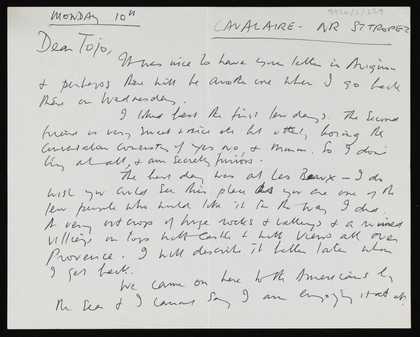 MONDAY 10th
CAVALAIRE - NR ST TROPEZ
Dear Tojo,
It was nice to have your letter in Avignon
& perhaps there will be another one when I go back
there on Wednesday.
I liked best the first few days. The second
friend is very sweet & nice
conversation consisting of yes no, & mmm. So I don't
at all, & am secretly furious.
The best day was at Les Baux - I do
wish you could see this place as you are one of the
few people who would like it in the way I did.
A very outcrop of huge rocks & valleys & a ruined
village on top with castle & with views all over
Provence. I will describe it better later when
I get back.
We came on here with the Americans by
the sea & I cannot say I am enjoying it at all.